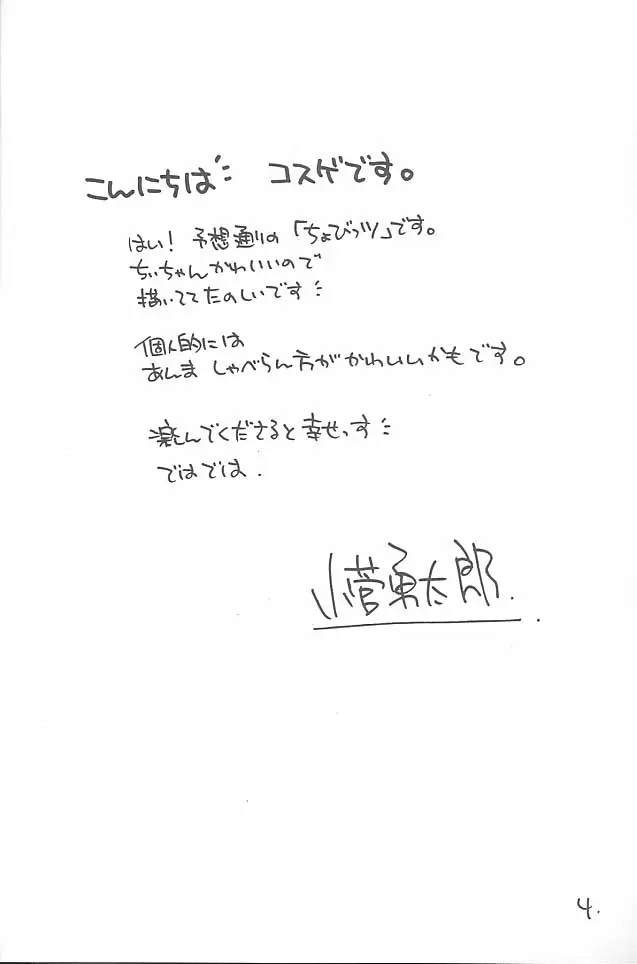 こんにちは!! コスゲです。
はい! 予想通りの「ちょびっツ」です。
ちぃちゃんかわいいので
描いててたのしいです!!
個人的には
あんま しゃべらん方がかわいいかもです。
楽しんでくださると幸せっす!!
ではでは.
小菅勇太郎.
4.